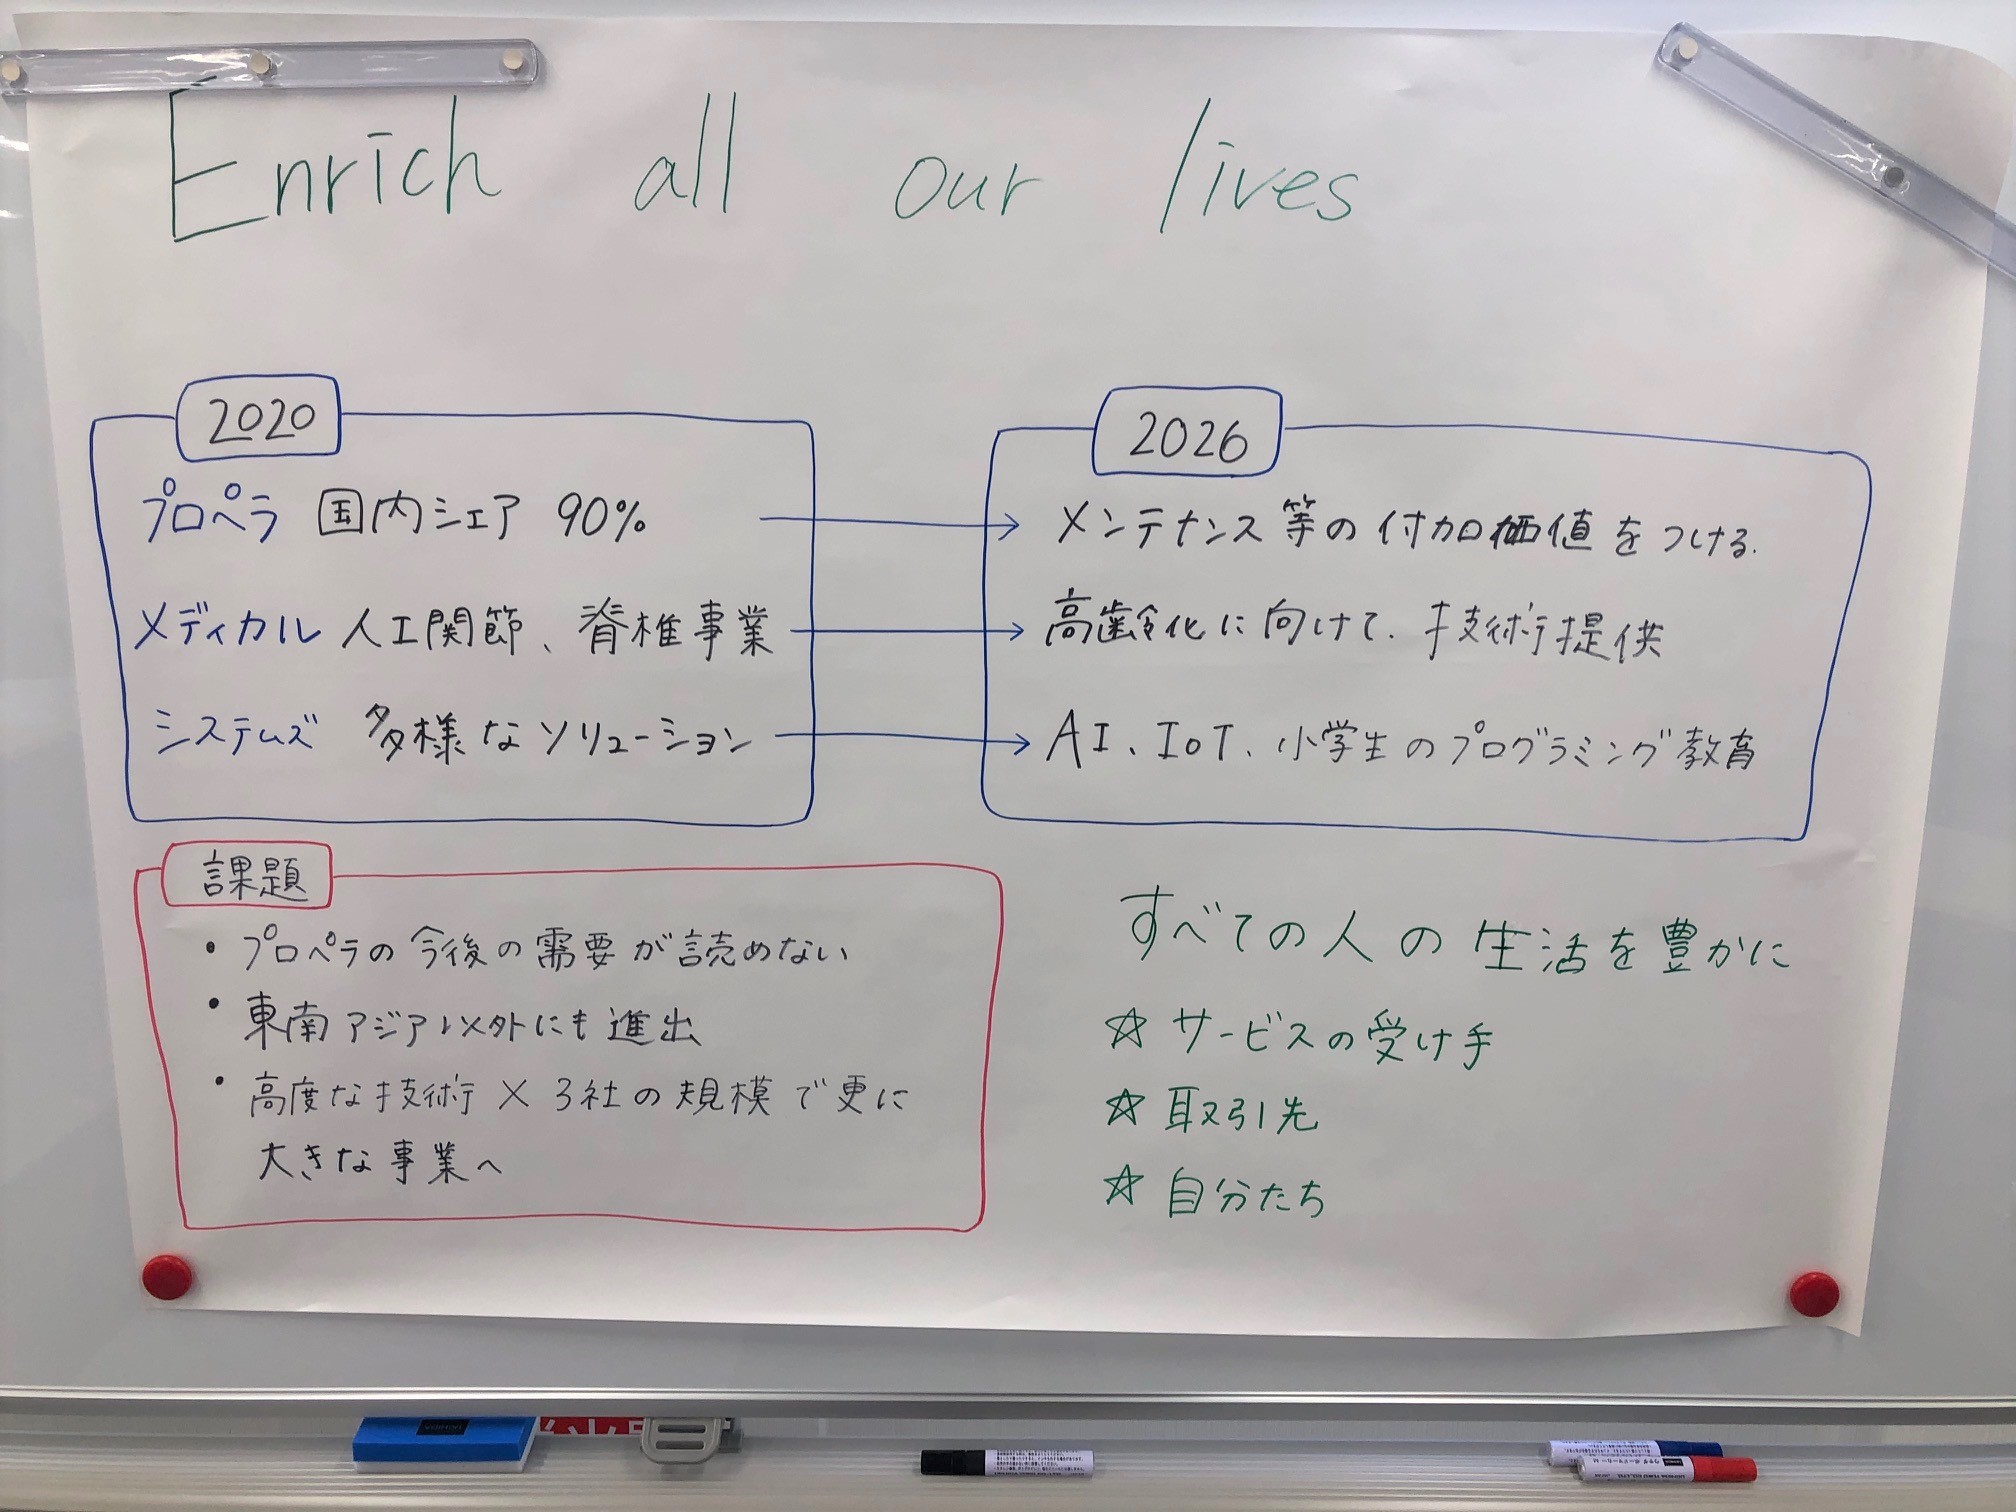 Enrich all our lives
2020
プロペラ 国内シェア 90%
メディカル 人工関節、脊椎事業
システムズ 多様なソリューション
2026
メンテナンス等の付加価値をつける.
高齢化に向けて、技術提供
AI、IoT、小学生のプログラミング教育
課題
・プロペラの今後の需要が読めない
・東南アジア以外にも進出
・高度な技術 × 3社の規模で更に
大きな事業へ
すべての人の生活を豊かに
☆ サービスの受け手
☆ 取引先
☆ 自分たち